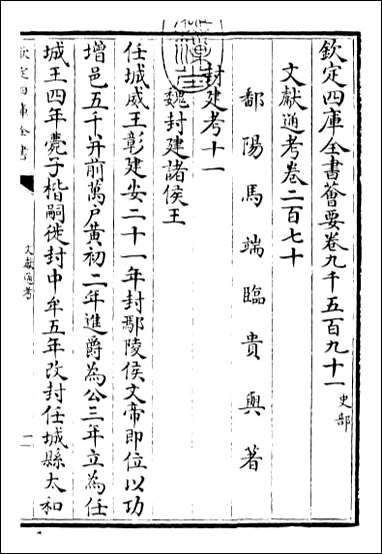 欽定四庫全書薈要卷九千五百九十一 史部
文獻通考卷二百七十
鄱陽馬端臨貴與著
封建考十一
魏封建諸侯王
任城威王彰建安二十一年封鄢陵侯文帝即位以功
增邑五千并前萬戸黄初二年進爵為公三年立為任
城王四年薨子楷嗣徙封中牟五年改封任城縣太和
欽定四庫全書
文獻通考